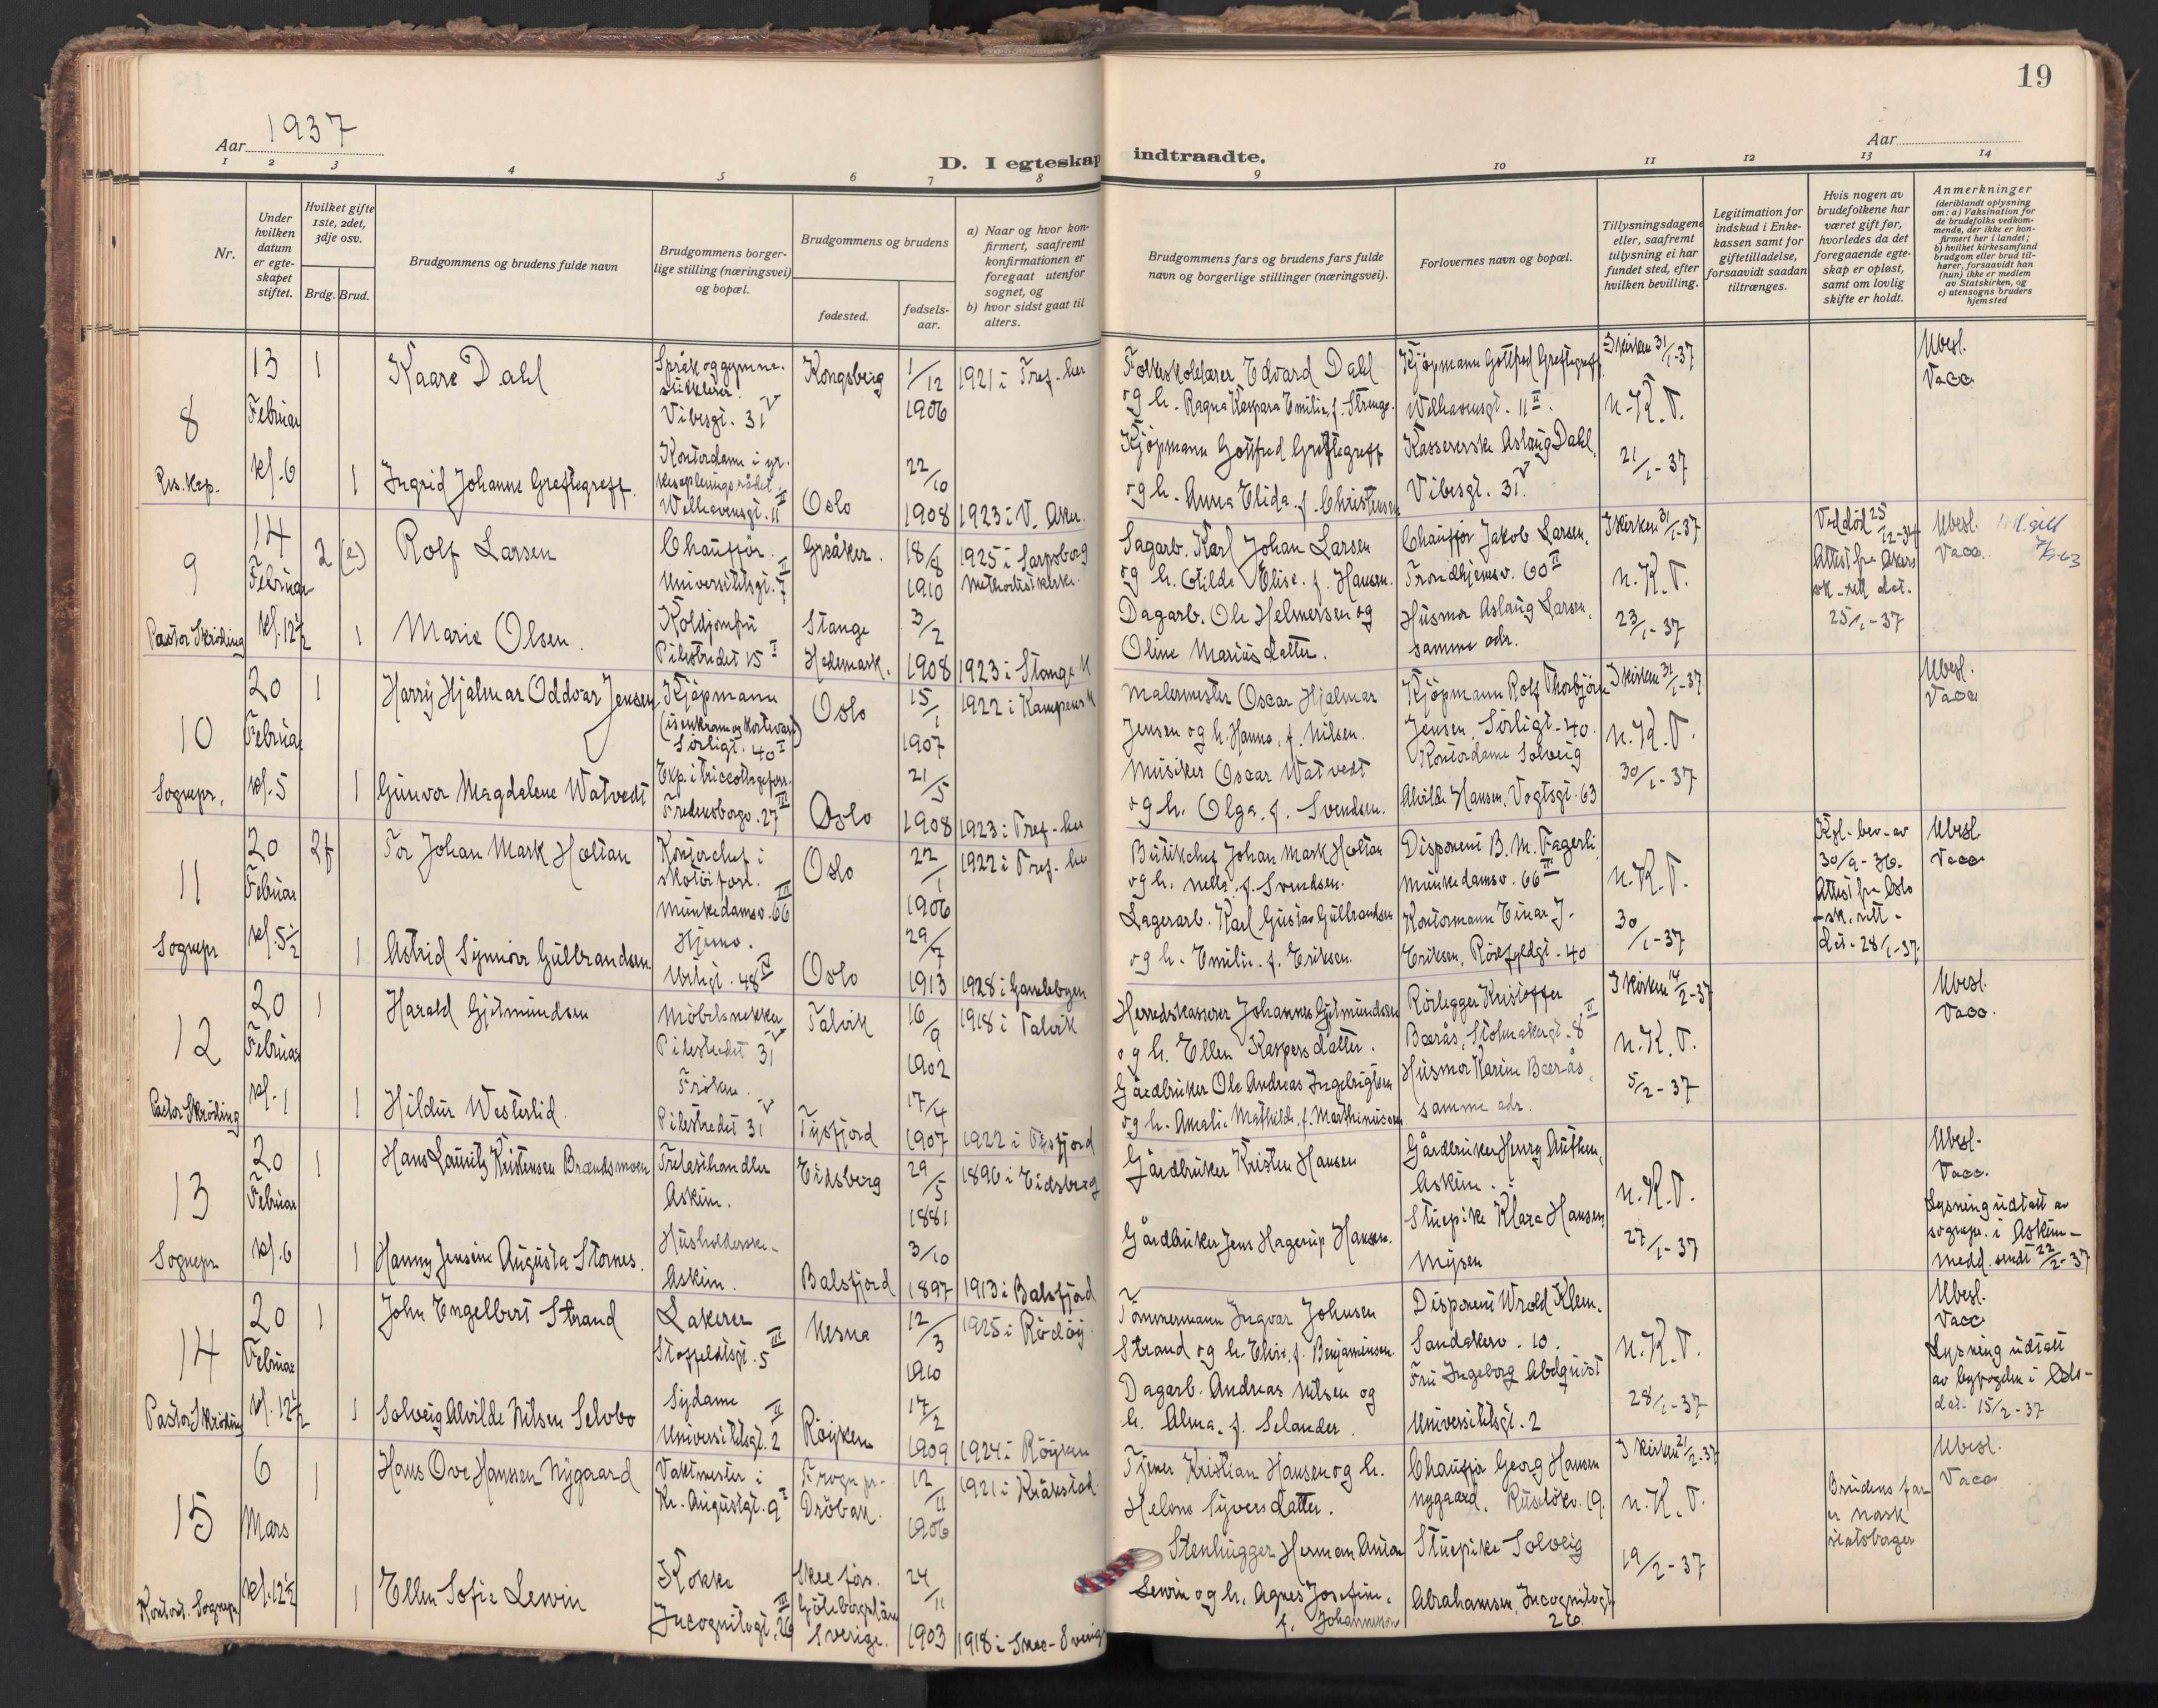 19
Aar 1937
Aar
D. I egteskap indtraadte.
1 2 3 4 5 6 7 8 9 10 11 12 13 14
Nr.
Under hvilken datum er egte-skapet stiftet.
Hvilket gifte 1ste, 2det, 3dje osv.
Brdg. Brud.
Brudgommens og brudens fulde navn
Brudgommens borger-lige stilling (næringsvei) og bopæl.
Brudgommens og brudens
fødested.
fødsels-aar.
a) Naar og hvor kon-firmert, saafremt konfirmationen er foregaat utenfor sognet, og
b) hvor sidst gaat til alters.
Brudgommens fars og brudens fars fulde navn og borgerlige stillinger (næringsvei).
Forlovernes navn og bopæl.
Tillysningsdagene eller, saafremt tillysning ei har fundet sted, efter hvilken bevilling.
Legitimation for indskud i Enke-kassen samt for giftetilladelse, forsaavidt saadan tiltrænges.
Hvis nogen av brudefolkene har været gift før, hvorledes da det foregaaende egte-skap er opløst, samt om lovlig skifte er holdt.
Anmerkninger
(deriblandt oplysning om: a) Vaksination for de brudefolks vedkom-mende, der ikke er kon-firmert her i landet; b) hvilket kirkesamfund brudgom eller brud til-hører, forsaavidt han (hun) ikke er medlem av Statskirken, og c) utensogns bruders hjemsted
8
Res. kap.
13 Februar kl. 6
1
Kaare Dahl
Språk og gymna-
stikklærer.
Vibesgt. 31 V
Kongsberg
1/12 1906
1921 i Tref. kir
Folkeskolelærer Edvard Dahl
og h. Ragna Kaspara Emilie, f. Strenge.
Kjøpmann Gottfred Greftegreff,
Welhavensgt. 11 II.
I kirken 31/1-37
n. K. T.
Ubesl.
Vacc.
1
Ingrid Johanne Greftegreff.
Kontordame i yr-
kesoplærings rådet,
Welhavensgt. 11 II
Oslo
22/10 1908
1923 i V. Aker.
Kjøpmann Gottfred Greftegreff
og h. Anna Elida, f. Christensen
Kassererske Aslaug Dahl,
Vibesgt. 31 V.
21/1-37
9
Pastor Skröding
14 Februar kl. 12 1/2
2 (e)
Rolf Larsen
Chauffør.
Universitetsgt. 7 II
Greåker.
18/8 1910
1925 i Sarpsborg
Methodistkirke.
Sagarb. Karl Johan Larsen
og h. Otilde Elise, f. Hansen.
Chauffør Jakob Larsen,
Trondhjemsv. 60 II
I kirken 31/1-37
n. K. T.
Ved död 25/12-34
Attest fra Akers
sk.-rett dat.
25/1-37
Ubesl.
Vacc.
1
Marie Olsen.
Koldjomfru
Pilestredet 15 I
Stange
Hedemark.
3/2 1908
1923 i Stange K
Dagarb. Ole Helmersen og
Oline Mariusdatter.
Husmor Aslaug Larsen,
samme adr.
23/1-37
10
Sognepr.
20 Februar kl. 5
1
Harry Hjalmar Oddvar Jensen
Kjøpmann
(isenkram og kortevarer)
Sörligt. 40 I
Oslo
15/1 1907
1922 i Kampens K
Malermester Oscar Hjalmar
Jensen og h. Hanna, f. Nilsen.
Kjøpmann Rolf Thorbjörn
Jensen, Sörligt. 40.
I kirken 31/1-37
n. K. T.
Ubesl.
Vacc
1
Gunvor Magdalene Watvedt
Exp. i tricotagefors.
Fredensborgv. 27 III
Oslo
21/5 1908
1923 i Tref. kir
Musiker Oscar Watvedt
og h. Olga, f. Svendsen.
Kontordame Solveig
Alvilde Hansen, Vogtsgt. 63
30/1-37
11
Sognepr
20 Februar kl. 5 1/2
2 f
Tor Johan Mark Holtan
Kontorchef i
skotöi forr.
Munkedamsv. 66 III
Oslo
22/1 1906
1922 i Tref. kir
Butikchef Johan Mark Holtan
og h. Nella, f. Svendsen.
Disponent B. M. Fagerli,
Munkedamsv. 66 III
n. K. T.
Kgl. bev. av
30/9-36.
Attest fra Oslo
sk. rett
dat. 28/1-37
Ubesl.
Vacc
1
Astrid Synnöve Gulbrandsen.
Hjemme.
Urtegt. 48 IV
Oslo
29/7 1913
1928 i Gamlebyen
Lagerarb. Karl Gustav Gulbrandsen
og h. Emilie, f. Eriksen.
Kontormann Einar J.
Eriksen, Rörfyldgt. 40
30/1-37
12
Pastor Skröding
20 Februar kl. 1
1
Harald Gjetmundsen
Möbelsnekker
Pilestredet 31 V
Talvik
16/9 1902
1918 i Talvik
Herredskasserer Johannes Gjetmundsen
og h. Ellen Kaspersdatter.
Rörlegger Kristoffer
Baarås, Stolmakergt. 8 II
I kirken 14/2-37
n. K. T.
Ubesl.
Vacc.
1
Hildur Westerlid.
Fröken.
Pilestredet 31 V
Tysfjord
17/4 1907
1922 i Tysfjord
Gårdbruker Ole Andreas Ingebrigtsen
og h. Amalie Mathilde, f. Marthinussen
Husmor Karine Baarås,
samme adr.
5/2-37
13
Sognepr
20 Februar kl. 6
1
Hans Lauritz Kristensen Brændsmoen
Trelasthandler
Askim.
Eidsberg
29/5 1881
1896 i Eidsberg
Gårdbruker Kristen Hansen
Gårdbruker Henry Autken,
Askim.
n. K. T.
Ubesl.
Vacc.
Lysning udtatt av
sognepr. i Askim-
medd. sendt 22/2-37
1
Hanny Jensine Augusta Stornes.
Husholderske.
Askim.
Balsfjord
3/10 1897
1913 i Balsfjord
Gårdbruker Jens Hagerup Hansen.
Stuepike Klara Hansen
Mysen
27/1-37
14
Pastor Skröding
20 Februar kl. 12 1/2
1
John Engelbert Strand
Lakerer
Stoppeldtsgt. 5 III
Nesna
12/3 1910
1925 i Rödöy
Tömmermann Ingvar Johnsen
Strand og h. Elise, f. Benjaminsen.
Disponent Wrold Klem,
Sandakerv. 10.
n. K. T.
Ubesl.
Vacc
Lysning udtatt
av byfogden i Oslo
dat. 15/2-37
1
Solveig Alvilde Nilsen Selvbo
Sydame
Universitetsgt. 2 II
Röyken
17/2 1909
1924 i Röyken
Dagarb. Andreas Nilsen og
h. Alma, f. Selander.
Fru Ingeborg Abelquist
Universitetsgt. 2
28/1-37
15
Konst. Sognepr.
6 Mars kl. 12 1/2
1
Hans Ove Hansen Nygaard
Vaktmester i
Kr. Augustgt. 9 I
Frogn pr.
Dröbak.
12/11 1906
1921 i Kråkstad.
Tjener Kristian Hansen og h.
Helene Syversdatter.
Chauffør Georg Hansen
Nygaard, Ruseløkv. 19.
I kirken 21/2-37
n. K. T.
Brudens far
er norsk
statsborger
Ubesl.
Vacc
1
Ellen Sofie Lewin
Kokke
Incognitogt. 26 III
Skee förs.
Göteborgs län
Sverige.
24/11 1903
1918 i Skee-Sverige
Stenhugger Herman Anton
Lewin og h. Agnes Josefine,
f. Johannesson
Stuepike Solveig
Abrahamsen, Incognitogt.
26.
19/2-37